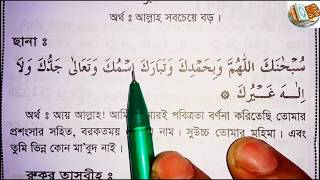 অর্থ ঃ আল্লাহ সবচেয়ে বড়।
ছানা ঃ
سُبْحٰنَكَ اللّٰهُمَّ وَبِحَمْدِكَ وَتَبَارَكَ اسْمُكَ وَتَعَالٰى جَدُّكَ وَلَا
اِلٰهَ غَيْرُكَ
অর্থ ঃ আয় আল্লাহ! আমি পবিত্রতা বর্ণনা করিতেছি তোমার
প্রশংসার সহিত, বরকতময় নাম। সুউচ্চ তোমার মহিমা। এবং
তুমি ভিন্ন কোন মা'বুদ নাই।
রুকুর তাসবীহ ঃ